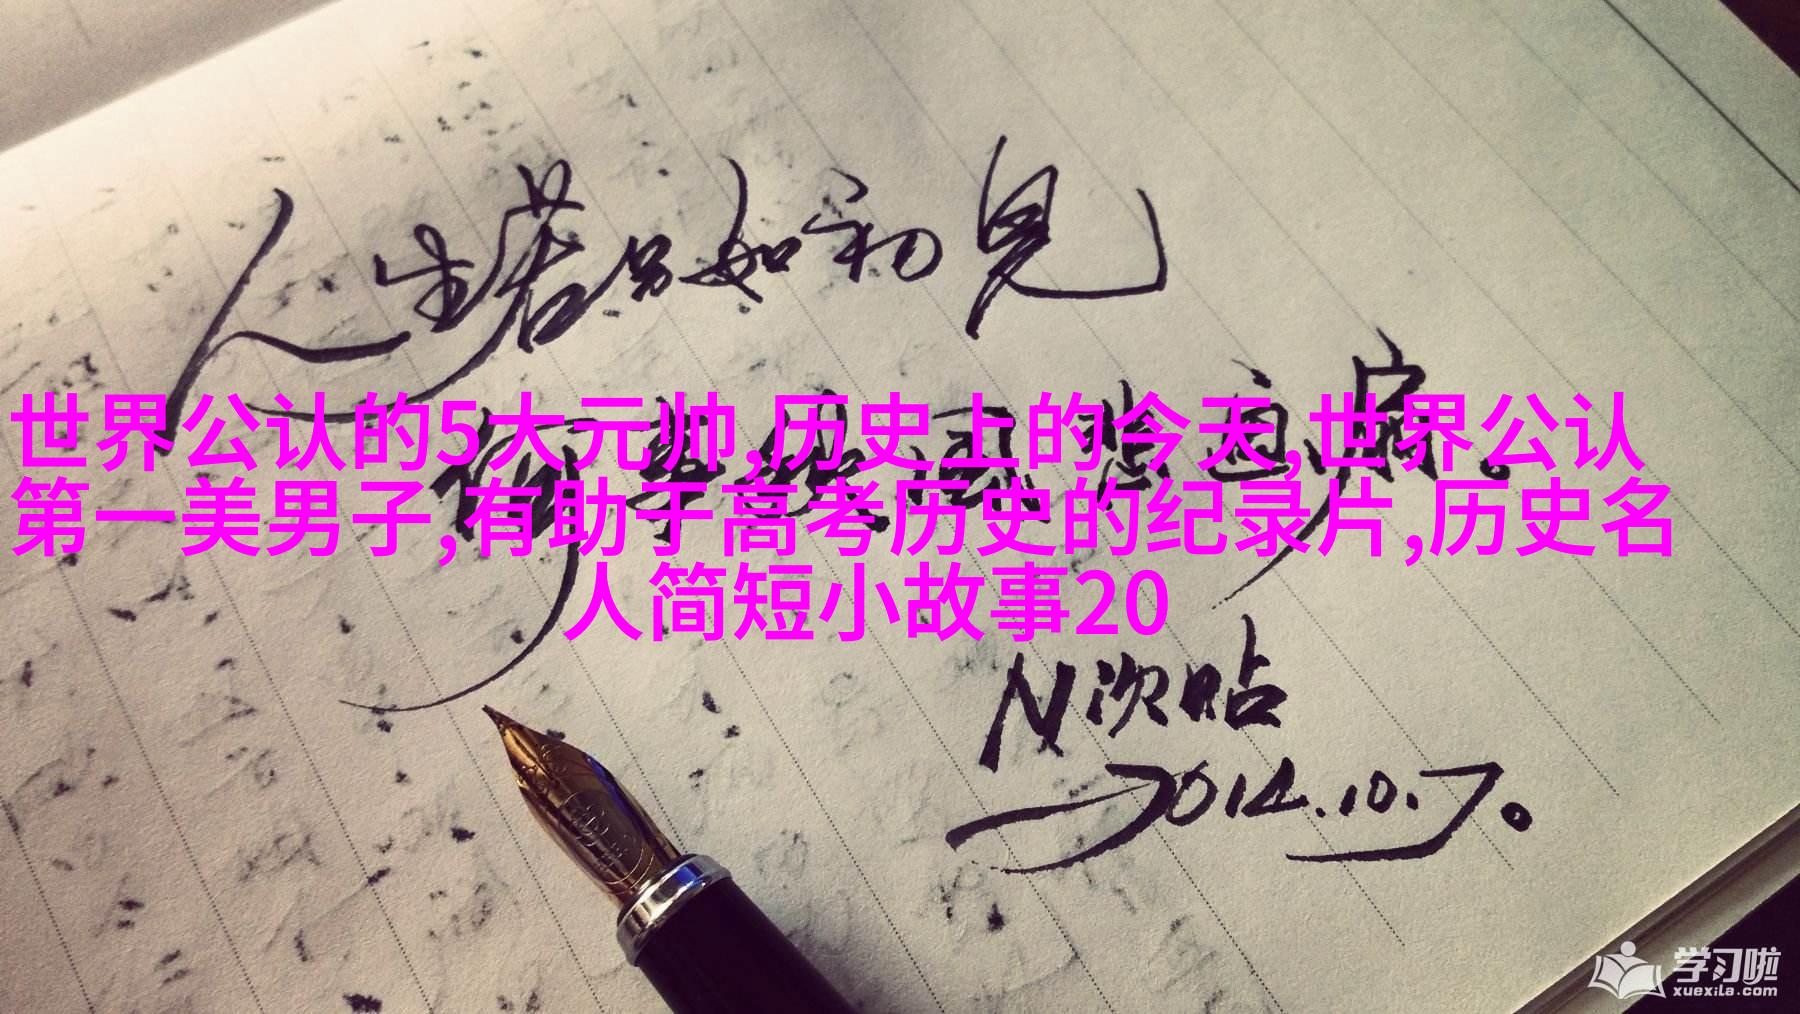 人生若只如初见
何事秋风悲画扇。
世界公认的5大元帅,历史上的今天,世界公认
第一美男子,有助于高考历史的纪录片,历史名
人简短小故事20
N次贴
2014.10.7。
学习啦
xuexila.com